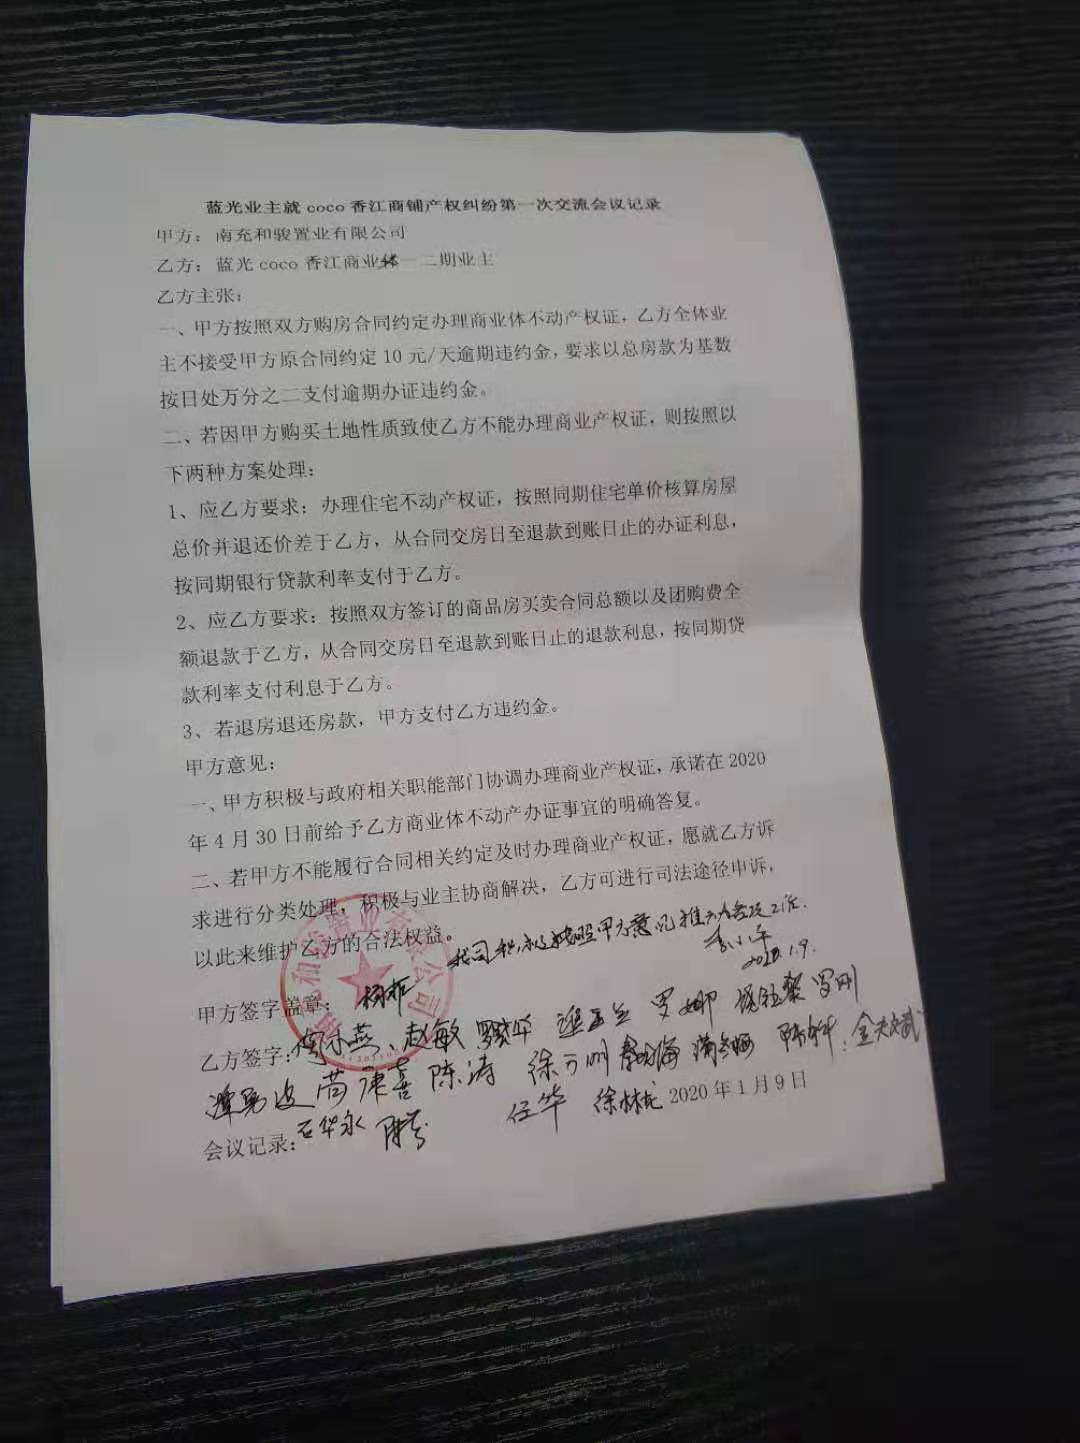 蓝光业主就coco香江商铺产权纠纷第一次交流会议记录
甲方：南充和骏置业有限公司
乙方：蓝光coco香江商业体一二期业主
乙方主张：
一、甲方按照双方购房合同约定办理商业体不动产权证，乙方全体业
主不接受甲方原合同约定10元/天逾期违约金，要求以总房款为基数
按日处万分之二支付逾期办证违约金。
二、若因甲方购买土地性质致使乙方不能办理商业产权证，则按照以
下两种方案处理：
1、应乙方要求：办理住宅不动产权证，按照同期住宅单价核算房屋
总价并退还价差于乙方，从合同交房日至退款到账日止的办证利息，
按同期银行贷款利率支付于乙方。
2、应乙方要求：按照双方签订的商品房买卖合同总额以及团购费全
额退款于乙方，从合同交房日至退款到账日止的退款利息，按同期贷
款利率支付利息于乙方。
3、若退房退还房款，甲方支付乙方违约金。
甲方意见：
一、甲方积极与政府相关职能部门协调办理商业产权证，承诺在2020
年4月30日前给予乙方商业体不动产办证事宜的明确答复。
二、若甲方不能履行合同相关约定及时办理商业产权证，愿就乙方诉
求进行分类处理，积极与业主协商解决，乙方可进行司法途径申诉，
以此来维护乙方的合法权益。
我司积极按照甲方意见推
2020.1.9.
甲方签字盖章：
乙方签字： 赵敏 罗娜 罗刚
陈涛
会议记录：石华永 任华 徐林 2020年1月9日